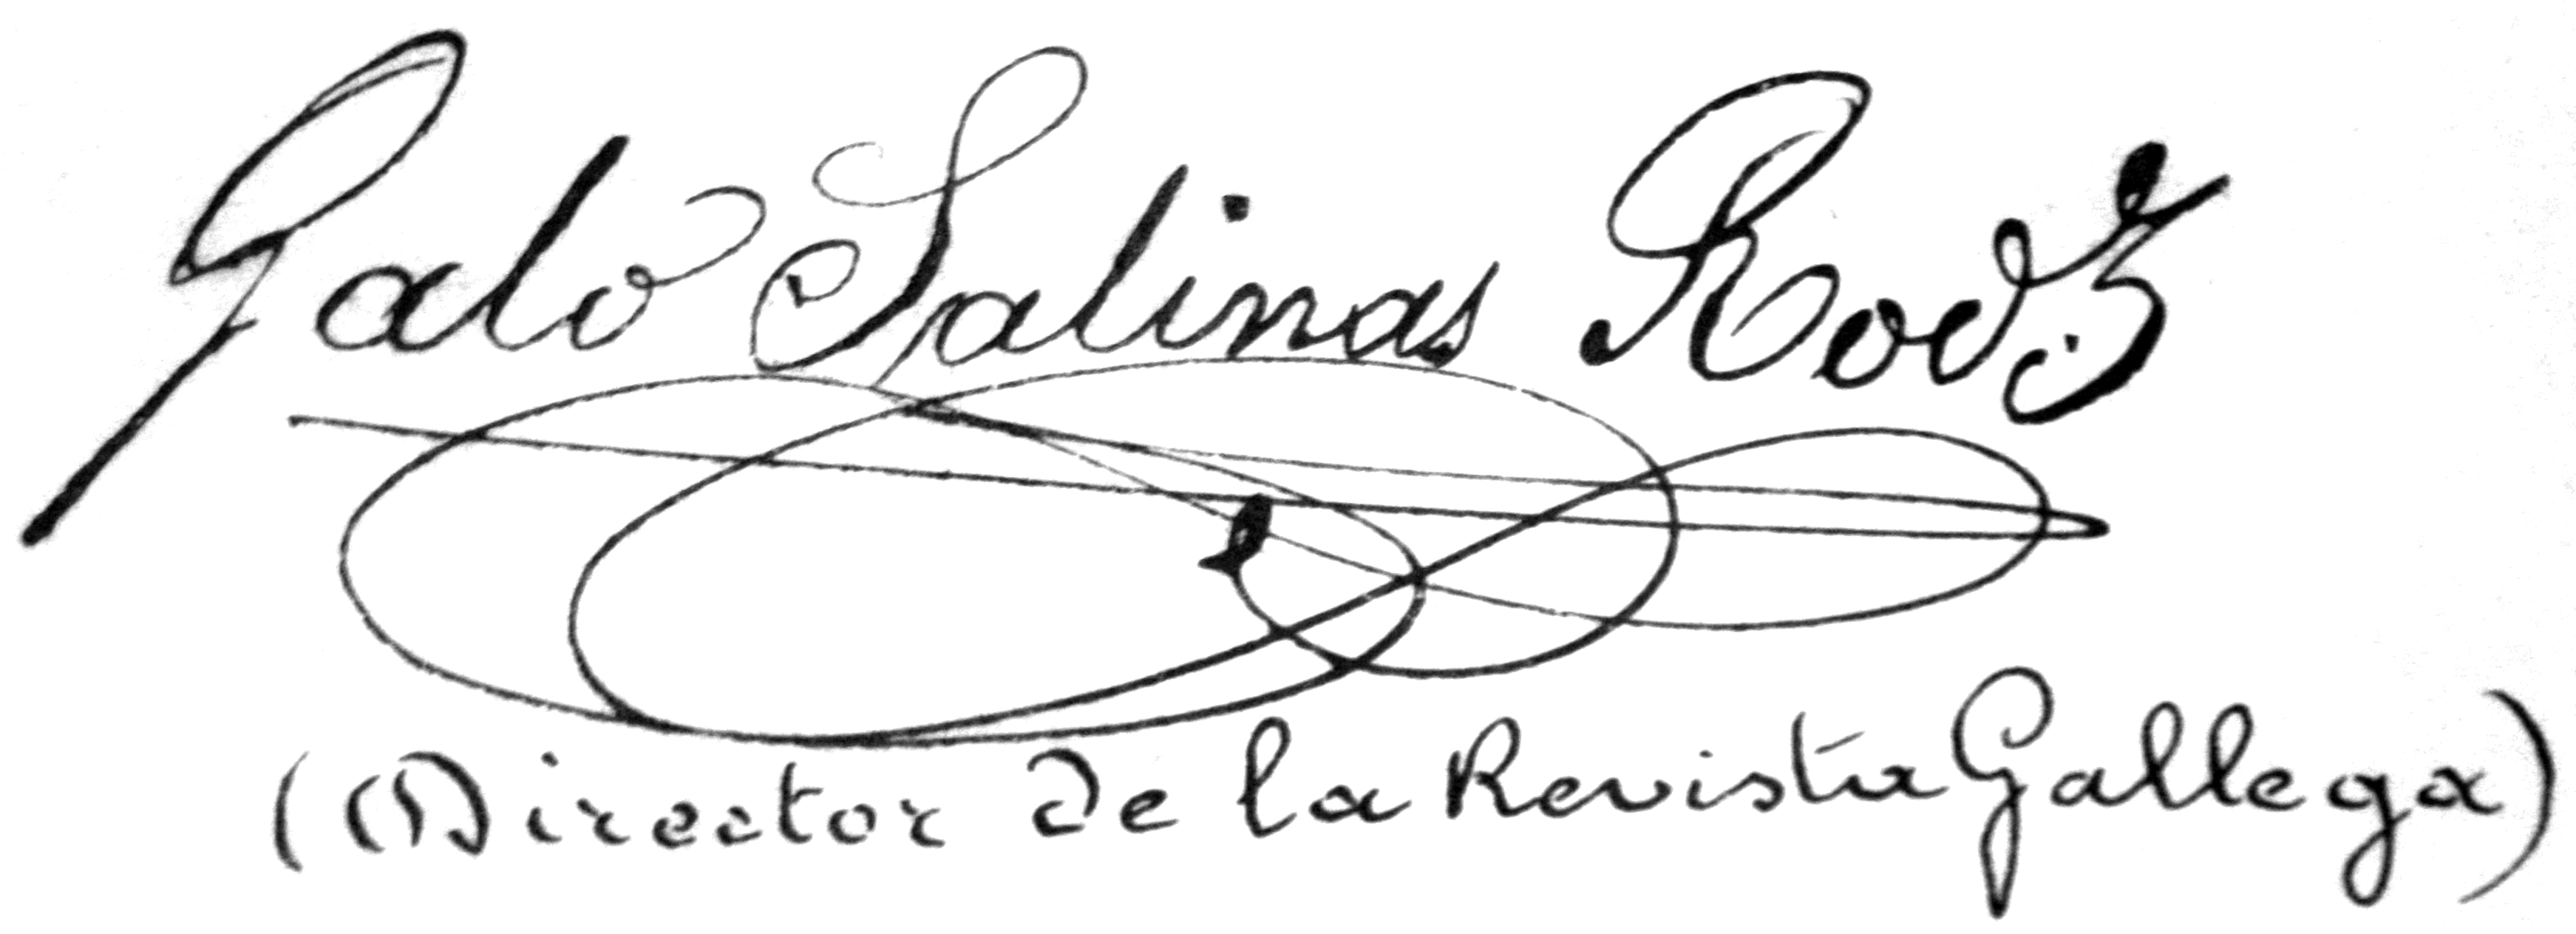 Galo Salinas Rodz
(Director de la Revista Gallega)